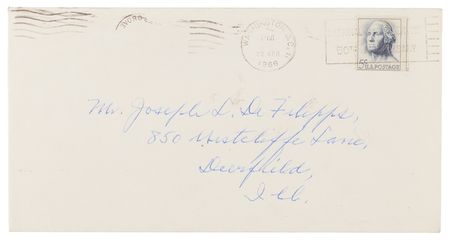 WASHINGTON, D.C.
1966
5¢ U.S. POSTAGE
Mr. Joseph L. De Filipps,
850 Westcliffe Lane,
Deerfield,
Ill.